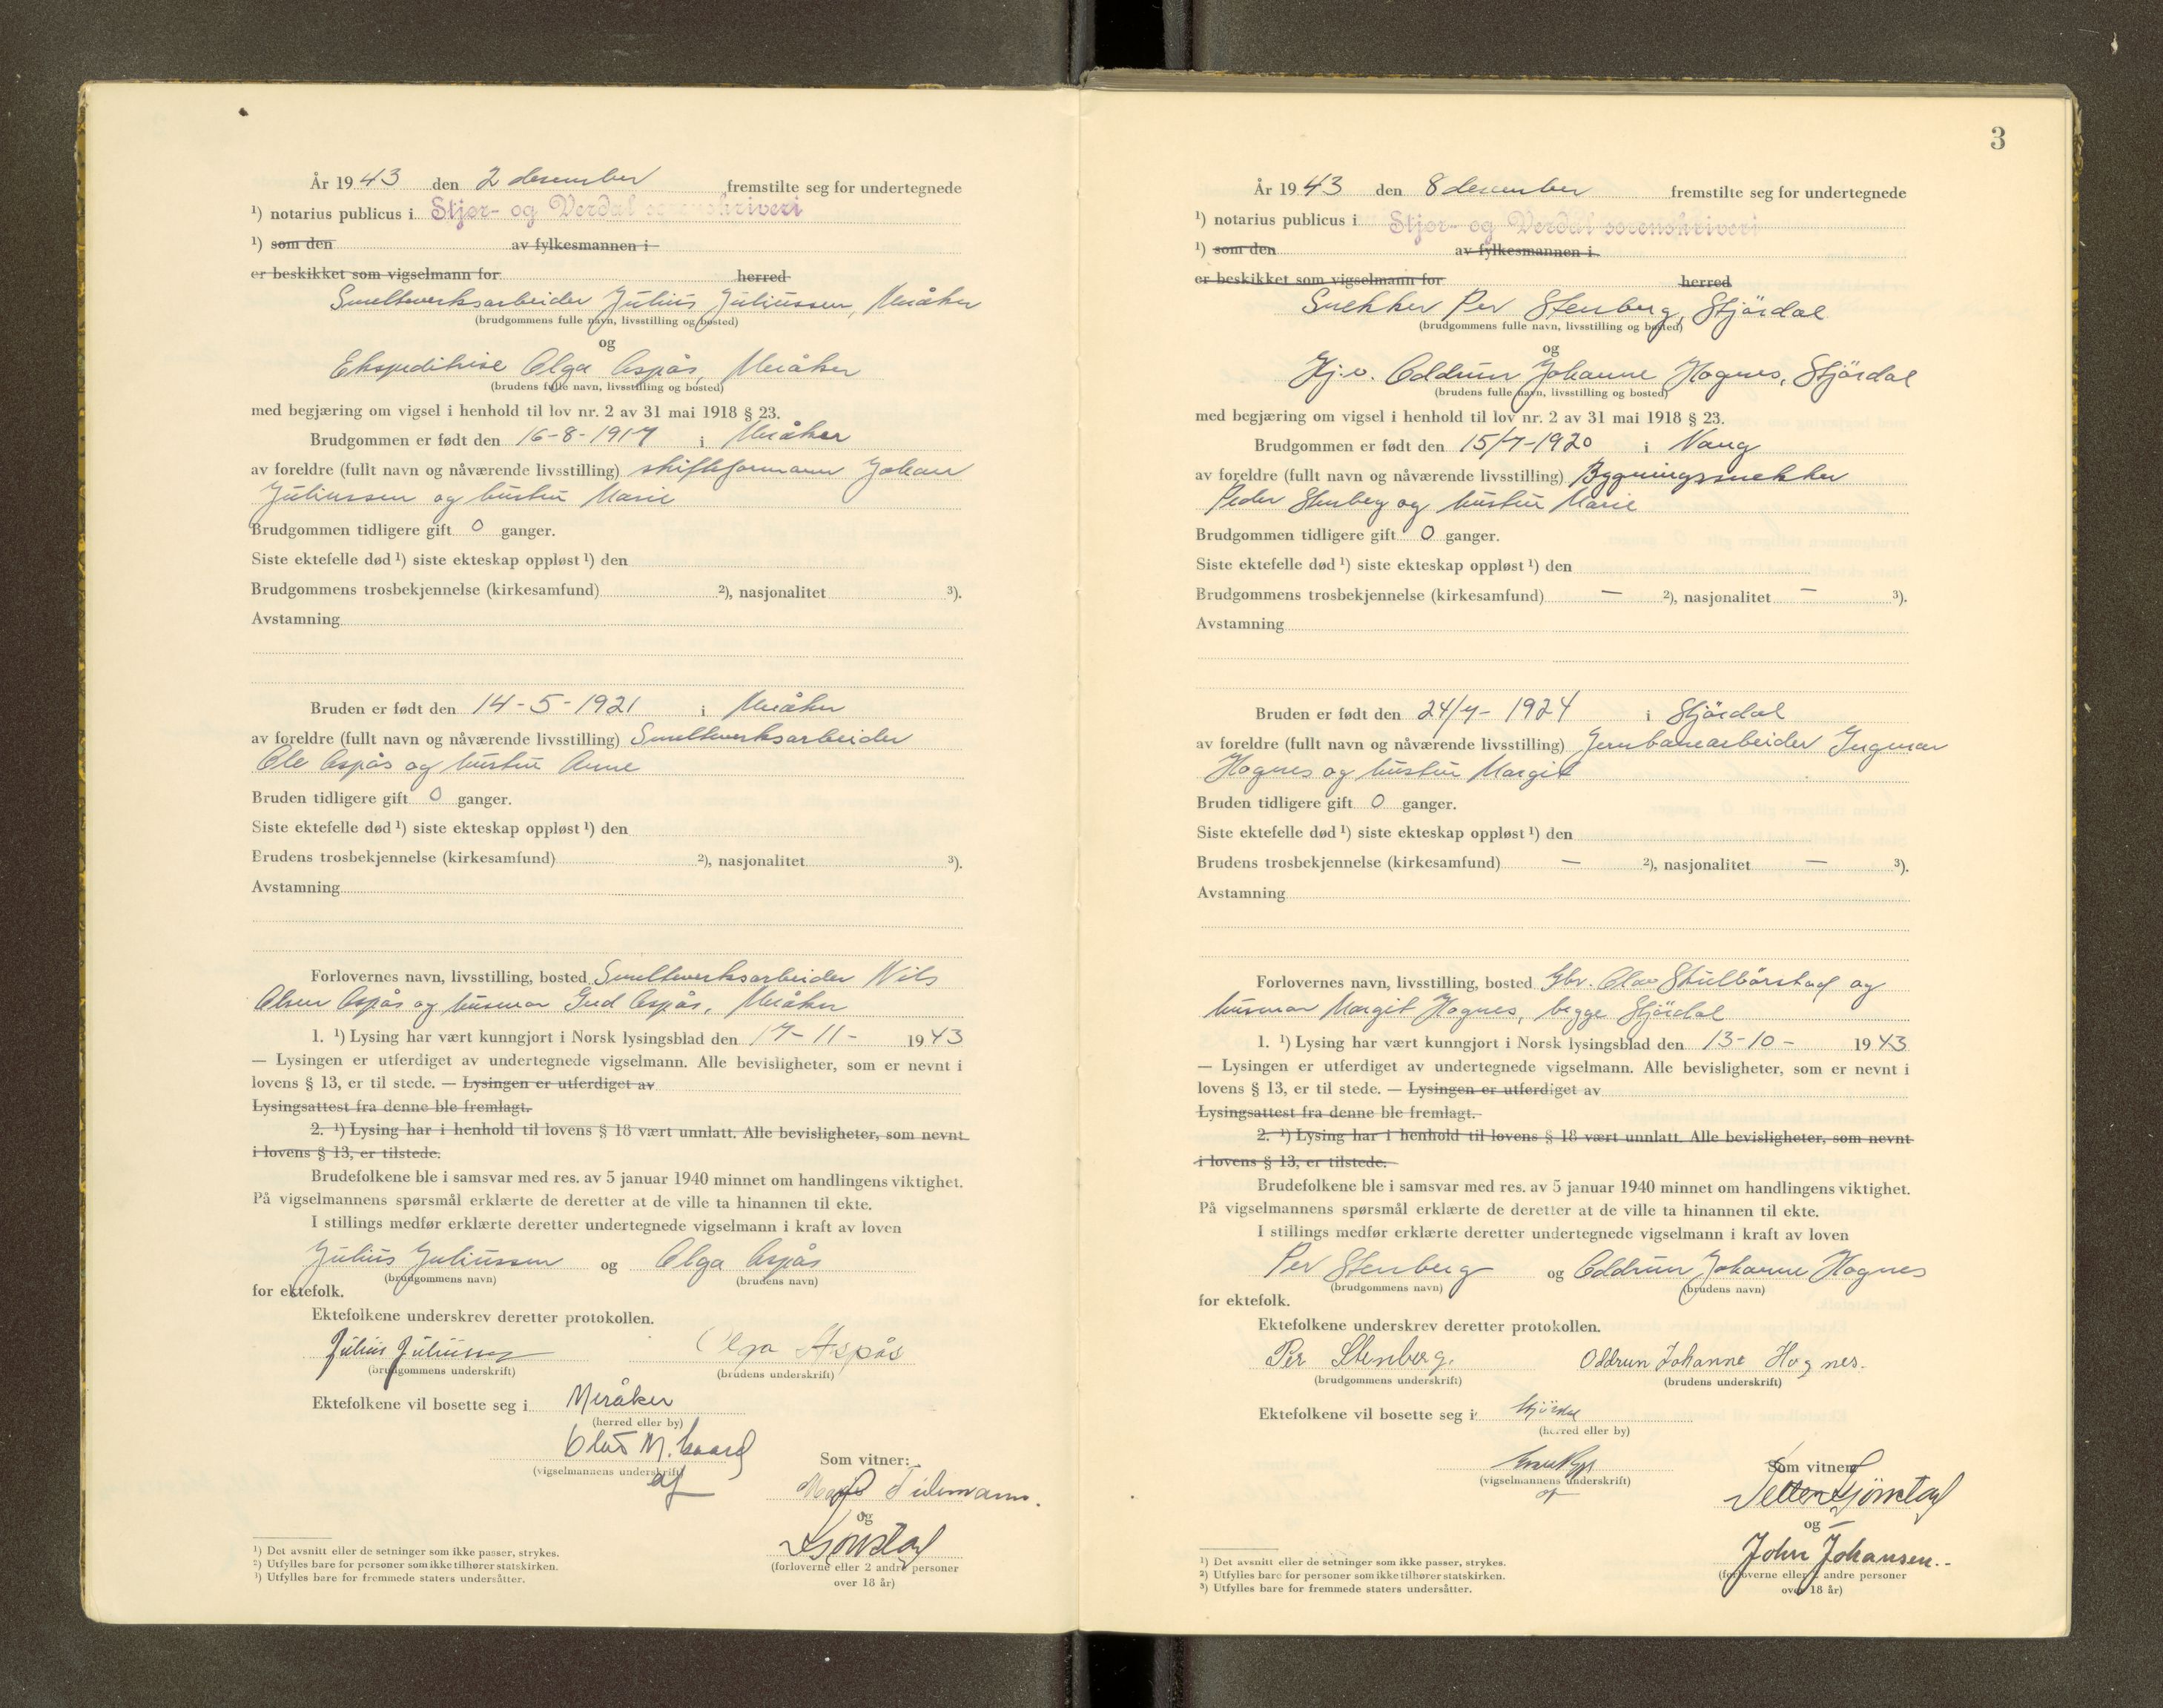 År 1943 den 2 desember fremstilte seg for undertegnede
¹) notarius publicus i Stjør- og Verdal sorenskriveri
¹) som den av fylkesmannen i
er beskikket som vigselmann for herred
Smelteverksarbeider Julius Juliussen, Meråker
(brudgommens fulle navn, livsstilling og bosted)
og
Ekspeditrise Olga Aspås, Meråker
(brudens fulle navn, livsstilling og bosted)
med begjæring om vigsel i henhold til lov nr. 2 av 31 mai 1918 § 23.
Brudgommen er født den 16-8-1917 i Meråker
av foreldre (fullt navn og nåværende livsstilling) skiftsformann Johan
Juliussen og hustru Marie
Brudgommen tidligere gift 0 ganger.
Siste ektefelle død ¹) siste ekteskap oppløst ¹) den
Brudgommens trosbekjennelse (kirkesamfund) ²), nasjonalitet ³).
Avstamning
Bruden er født den 14-5-1921 i Meråker
av foreldre (fullt navn og nåværende livsstilling) Smelteverksarbeider
Ole Aspås og hustru Anne
Bruden tidligere gift 0 ganger.
Siste ektefelle død ¹) siste ekteskap oppløst ¹) den
Brudens trosbekjennelse (kirkesamfund) ²), nasjonalitet ³).
Avstamning
Forlovernes navn, livsstilling, bosted Smelteverksarbeider Nils
Olsen Aspås og husmor Gud Aspås, Meråker
1. ¹) Lysing har vært kunngjort i Norsk lysingsblad den 17-11- 1943
— Lysingen er utferdiget av undertegnede vigselmann. Alle bevisligheter, som er nevnt i
lovens § 13, er til stede. — Lysingen er utferdiget av
Lysingsattest fra denne ble fremlagt.
2. ¹) Lysing har i henhold til lovens § 18 vært unnlatt. Alle bevisligheter, som nevnt
i lovens § 13, er tilstede.
Brudefolkene ble i samsvar med res. av 5 januar 1940 minnet om handlingens viktighet.
På vigselmannens spørsmål erklærte de deretter at de ville ta hinannen til ekte.
I stillings medfør erklærte deretter undertegnede vigselmann i kraft av loven
Julius Juliussen og Olga Aspås
(brudgommens navn) (brudens navn)
for ektefolk.
Ektefolkene underskrev deretter protokollen.
Julius Juliussen Olga Aspås
(brudgommens underskrift) (brudens underskrift)
Ektefolkene vil bosette seg i Meråker
(herred eller by)
Olav M.
(vigselmannens underskrift)
Som vitner:
og
(forloverne eller 2 andre personer
over 18 år)
¹) Det avsnitt eller de setninger som ikke passer, strykes.
²) Utfylles bare for personer som ikke tilhører statskirken.
³) Utfylles bare for fremmede staters undersåtter.
3
År 1943 den 8 desember fremstilte seg for undertegnede
¹) notarius publicus i Stjør- og Verdal sorenskriveri
¹) som den av fylkesmannen i
er beskikket som vigselmann for herred
Snekker Per Stenberg, Stjørdal
(brudgommens fulle navn, livsstilling og bosted)
og
Hj.v. Oddrun Johanne Hognes, Stjørdal
(brudens fulle navn, livsstilling og bosted)
med begjæring om vigsel i henhold til lov nr. 2 av 31 mai 1918 § 23.
Brudgommen er født den 15/7-1920 i Vang
av foreldre (fullt navn og nåværende livsstilling) Bygningssnekker
Peder Stenberg og hustru Marie
Brudgommen tidligere gift 0 ganger.
Siste ektefelle død ¹) siste ekteskap oppløst ¹) den
Brudgommens trosbekjennelse (kirkesamfund) — ²), nasjonalitet — ³).
Avstamning
Bruden er født den 24/7-1924 i Stjørdal
av foreldre (fullt navn og nåværende livsstilling) Jernbanearbeider Ingmar
Hognes og hustru Margit
Bruden tidligere gift 0 ganger.
Siste ektefelle død ¹) siste ekteskap oppløst ¹) den
Brudens trosbekjennelse (kirkesamfund) — ²), nasjonalitet — ³).
Avstamning
Forlovernes navn, livsstilling, bosted Gbr. Olav Skulbørstad og
husmor Margit Hognes, begge Stjørdal
1. ¹) Lysing har vært kunngjort i Norsk lysingsblad den 13-10- 1943
— Lysingen er utferdiget av undertegnede vigselmann. Alle bevisligheter, som er nevnt i
lovens § 13, er til stede. — Lysingen er utferdiget av
Lysingsattest fra denne ble fremlagt.
2. ¹) Lysing har i henhold til lovens § 18 vært unnlatt. Alle bevisligheter, som nevnt
i lovens § 13, er tilstede.
Brudefolkene ble i samsvar med res. av 5 januar 1940 minnet om handlingens viktighet.
På vigselmannens spørsmål erklærte de deretter at de ville ta hinannen til ekte.
I stillings medfør erklærte deretter undertegnede vigselmann i kraft av loven
Per Stenberg og Oddrun Johanne Hognes
(brudgommens navn) (brudens navn)
for ektefolk.
Ektefolkene underskrev deretter protokollen.
Per Stenberg. Oddrun Johanne Hognes.
(brudgommens underskrift) (brudens underskrift)
Ektefolkene vil bosette seg i Stjørdal
(herred eller by)
(vigselmannens underskrift)
Som vitner
og
John Johansen.-
(forloverne eller 2 andre personer
over 18 år)
¹) Det avsnitt eller de setninger som ikke passer, strykes.
²) Utfylles bare for personer som ikke tilhører statskirken.
³) Utfylles bare for fremmede staters undersåtter.